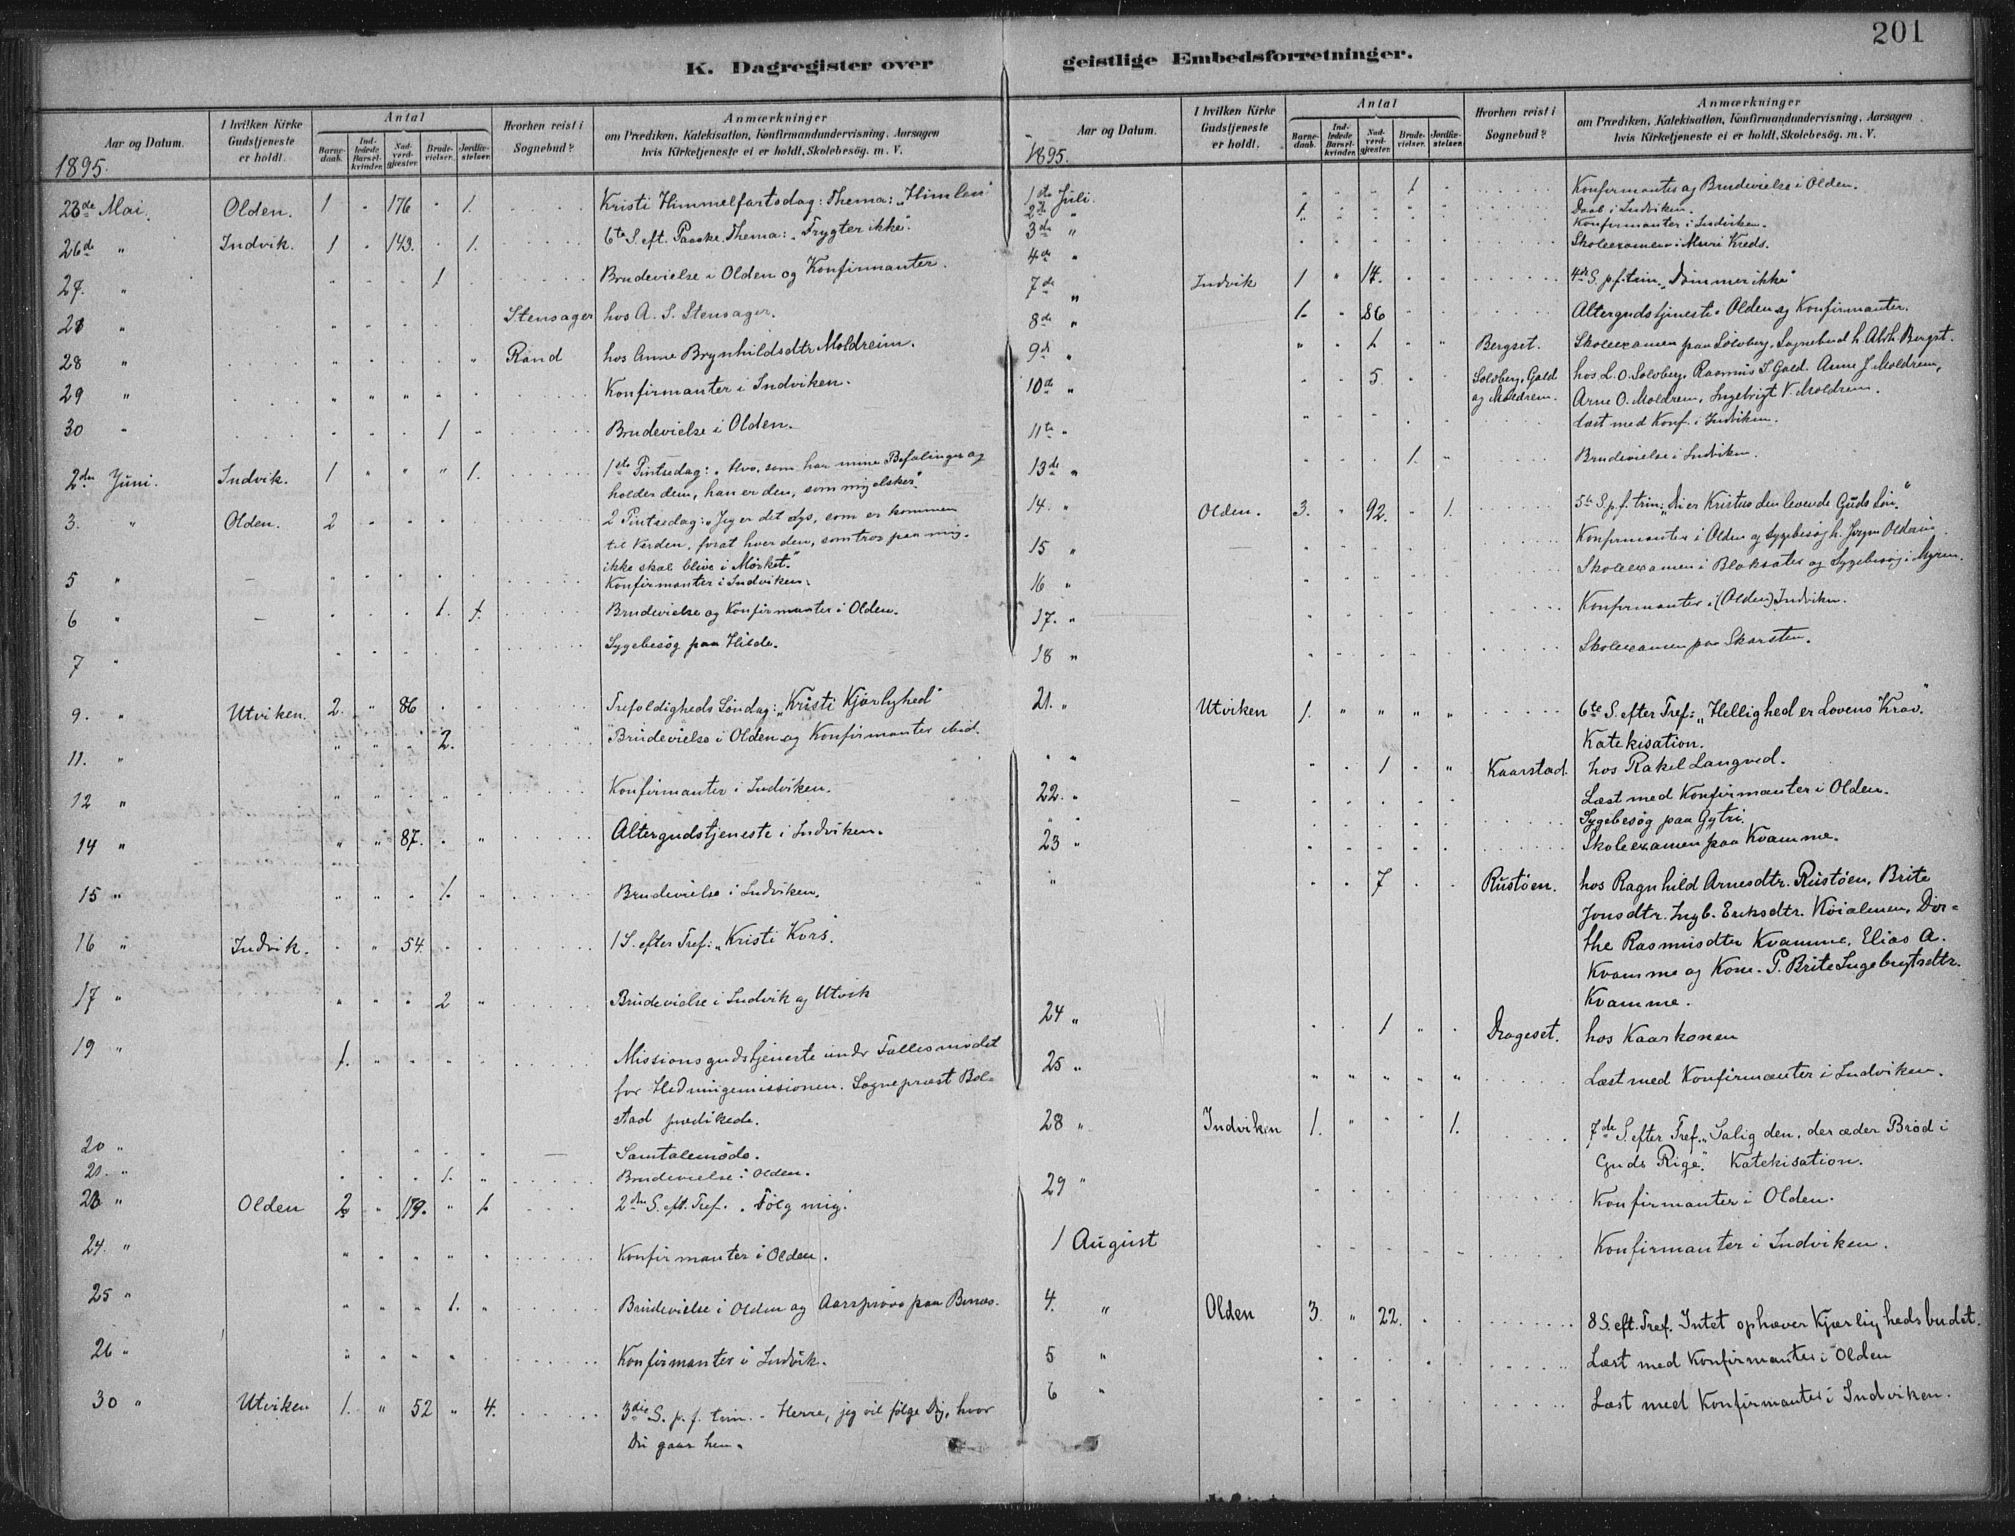 201
K. Dagregister over geistlige Embedsforretninger.
Aar og Datum. I hvilken Kirke Gudstjeneste er holdt. Antal Barnedaab. Indledede Barselkvinder. Nadverdgjæster. Brudevielser. Jordfæstelser. Hvorhen reist i Sognebud? Anmærkninger
om Prædiken, Katekisation, Konfirmandundervisning, Aarsagen
hvis Kirketjeneste ei er holdt, Skolebesøg. m. V.
1895.
23de Mai. Olden. 1 " 176 " 1. Kristi Himmelfartsdag: Thema: "Himlen"
26de " Indvik. 1 " 143. " 1. 6te S. eft. Paaske. Thema: "Frygter ikke".
27. " 1 Brudevielse i Olden og Konfirmanter.
28 " Stensager hos A. S. Stensager.
28 " Rand hos Anne Brynhildsdtr Moldreim.
29 " Konfirmanter i Indviken.
30 " 1 Brudevielse i Olden.
2den Juni. Indvik. 1 " " " 1. 1ste Pintsedag: "Hvo, som har mine Befalinger og
holder dem, han er den, som mig elsker".
3. " Olden. 2 2 Pintsedag: "Jeg er det Lys, som er kommen
til Verden, forat hver den, som tror paa mig,
ikke skal blive i Mørket."
5 " Konfirmanter i Indviken.
6 " 1. 1. Brudevielse og Konfirmanter i Olden.
7 " Sygebesøg paa Hilde.
9. " Utviken. 2. " 86 Trefoldigheds Søndag: "Kristi Kjærlighed"
11. " 2. Brudevielse i Olden og Konfirmanter ibid.
12 " Konfirmanter i Indviken.
14 " 87. Altergudstjeneste i Indviken.
15 " 1. Brudevielse i Indviken.
16 " Indvik. 54. 1 S. efter Tref.: "Kristi Kors.
17 " 2 Brudevielse i Indvik og Utvik
19 " 1. Missionsgudstjeneste under Fællesmødet
for Hedningemissionen. Sognepræst Bol-
stad prædikede.
20 " Samtalemøde.
21. " 1. Brudevielse i Olden.
23 " Olden 2 " 179. " 1 2den S. eft. Tref. "Følg mig".
24. " Konfirmanter i Olden.
25 " 1. Brudevielse i Olden og Aarsprøve paa Bønæs.
26 " Konfirmanter i Indvik.
30 " Utviken 1. " 52 " 4. 3die S. p. f. trin. - Herre, jeg vil følge Dig, hvor
Du gaar hen.
Aar og Datum. I hvilken Kirke Gudstjeneste er holdt. Antal Barnedaab. Indledede Barselkvinder. Nadverdgjæster. Brudevielser. Jordfæstelser. Hvorhen reist i Sognebud? Anmærkninger
om Prædiken, Katekisation, Konfirmandundervisning, Aarsagen
hvis Kirketjeneste ei er holdt, Skolebesøg. m. V.
1895.
1ste Juli. 1 Konfirmanter og Brudevielse i Olden.
2den " 1 Daab i Indviken.
3die " Konfirmanter i Indviken.
4de " Skoleexamen i Muri Kreds.
7de " Indvik 1 " 14. 4de S. p. f. trin. "Dømmer ikke"
8de " 1 " 86 Altergudstjeneste i Olden og Konfirmanter.
9de " 1 Bergset. Skoleexamen paa Solvberg. Sognebud h. Abrh. Bergset.
10de " 5. Solvberg, Gald hos L. O. Solvberg, Rasmus S. Gald. Anne J. Moldrem,
og Moldrem. Arne O. Moldrem, Ingebrigt V. Moldrem.
11te " Læst med Konf. i Indviken.
13de " 1. Brudevielse i Indviken.
14. " Olden. 3. " 92. " 1. 5te S. p. f. trin: "Du er Kristus den levende Guds Søn."
15 " Konfirmanter i Olden og Sygebesøg h. Jørgen
16 " Skoleexamen i Blaksæter og Sygebesøg i Myren.
17. " Konfirmanter i (Olden) Indviken.
18 " Skoleexamen paa Skarsten.
21. " Utviken 1. 6te S. efter Tref.: "Hellighed er Lovens Krav."
Katekisation.
" " 1 Kaarstad. hos Rakel Langved.
22. " Læst med Konfirmanter i Olden.
" " Sygebesøg paa Gytri.
23 " Skoleexamen paa Kvamme.
" 7 Rustøen. hos Ragnhild Arnesdtr. Rustøen, Brite
Jonsdtr. Ingb. Eriksdtr. Dor-
the Rasmusdtr Kvamme, Elias A.
Kvamme og Kone. P. Brite Ingebrigtsdtr.
Kvamme.
24 " 1 Drageset. hos Kaarkonen
25 " Læst med Konfirmanter i Indviken.
28 " Indviken 1. " " " 1. 7de S. efter Tref. "Salig den, der æder Brød i
Guds Rige". Katekisation.
29 " Konfirmanter i Olden.
1 August Konfirmanter i Indviken.
4. " Olden 3. " 22. 8 S. eft. Tref. Intet ophæver Kjærlighedsbudet.
5 " Læst med Konfirmanter i Olden
6 " Læst med Konfirmanter i Indviken.